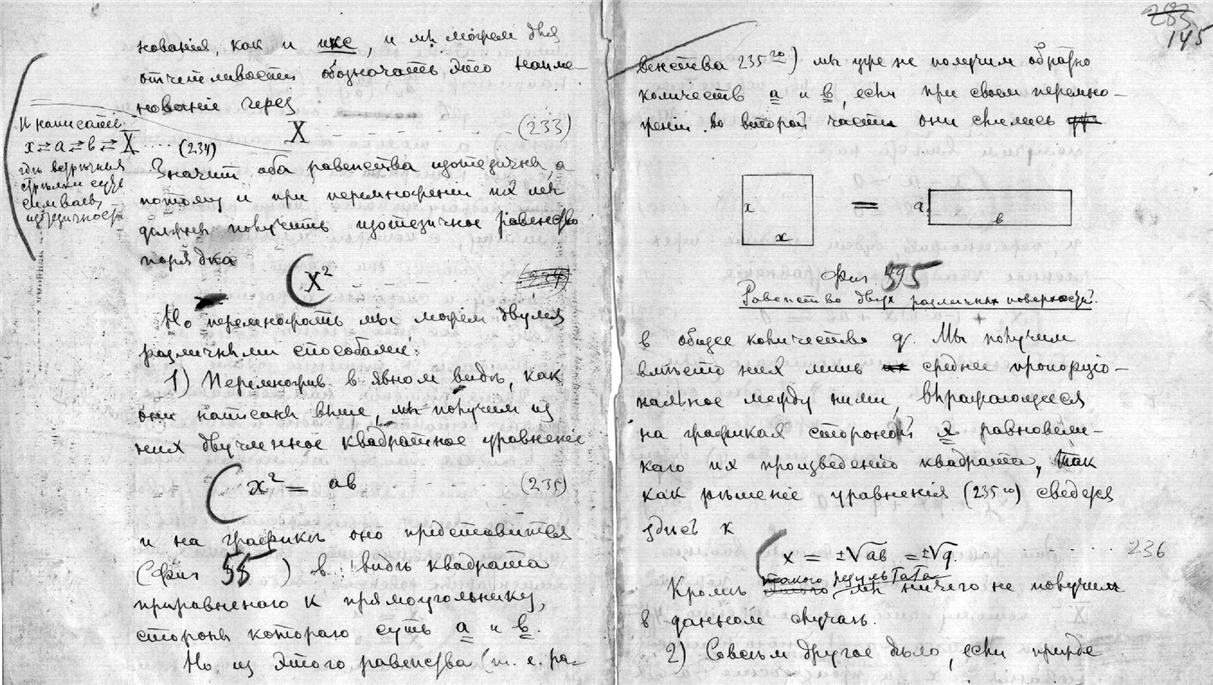 нованія, как и иксе, и мы можем для
отчетливости обозначать это наиме-
нованіе через
X - - - - - (233)
И написать
x ⇄ a ⇄ b ⇄ X ... (234)
гдѣ встрѣчныя
стрѣлки суть
символы
изотдичност
Значит оба равенства изотедичны, а
потому и при перемноженіи их мы
должны получить изотедичное равенство
порядка
X²
Но перемножать мы можем двумя
различными способами:
1) Перемножив в явном видѣ, как
они написаны выше, мы получим из
них двучленное квадратное уравненіе
x² = ab (235)
и на графикѣ оно представится
(фиг 55 ) в видѣ квадрата
приравненаго к прямоугольнику,
стороны котораго суть а и в.
Но из этого равенства (т. е. ра-
283
145
венства 235го) мы уже не получим обратно
количеств а и в, если при своем перемно-
женіи во второй части они слились
x
x
=
а
в
Фиг 595
Равенство двух различных поверхностей.
в общее количество q. Мы получим
вмѣсто них лишь среднее пропорціо-
нальное между ними, выражающееся
на графиках стороной x равновели-
каго их произведенію квадрата, так
как рѣшеніе уравненія (235го) сведется
здѣсь к
x = ±√ab = ±√q. . . . 236
Кромѣ такого результата мы ничего не получим
в данном случаѣ.
2) Совсѣм другое дѣло, если прежде